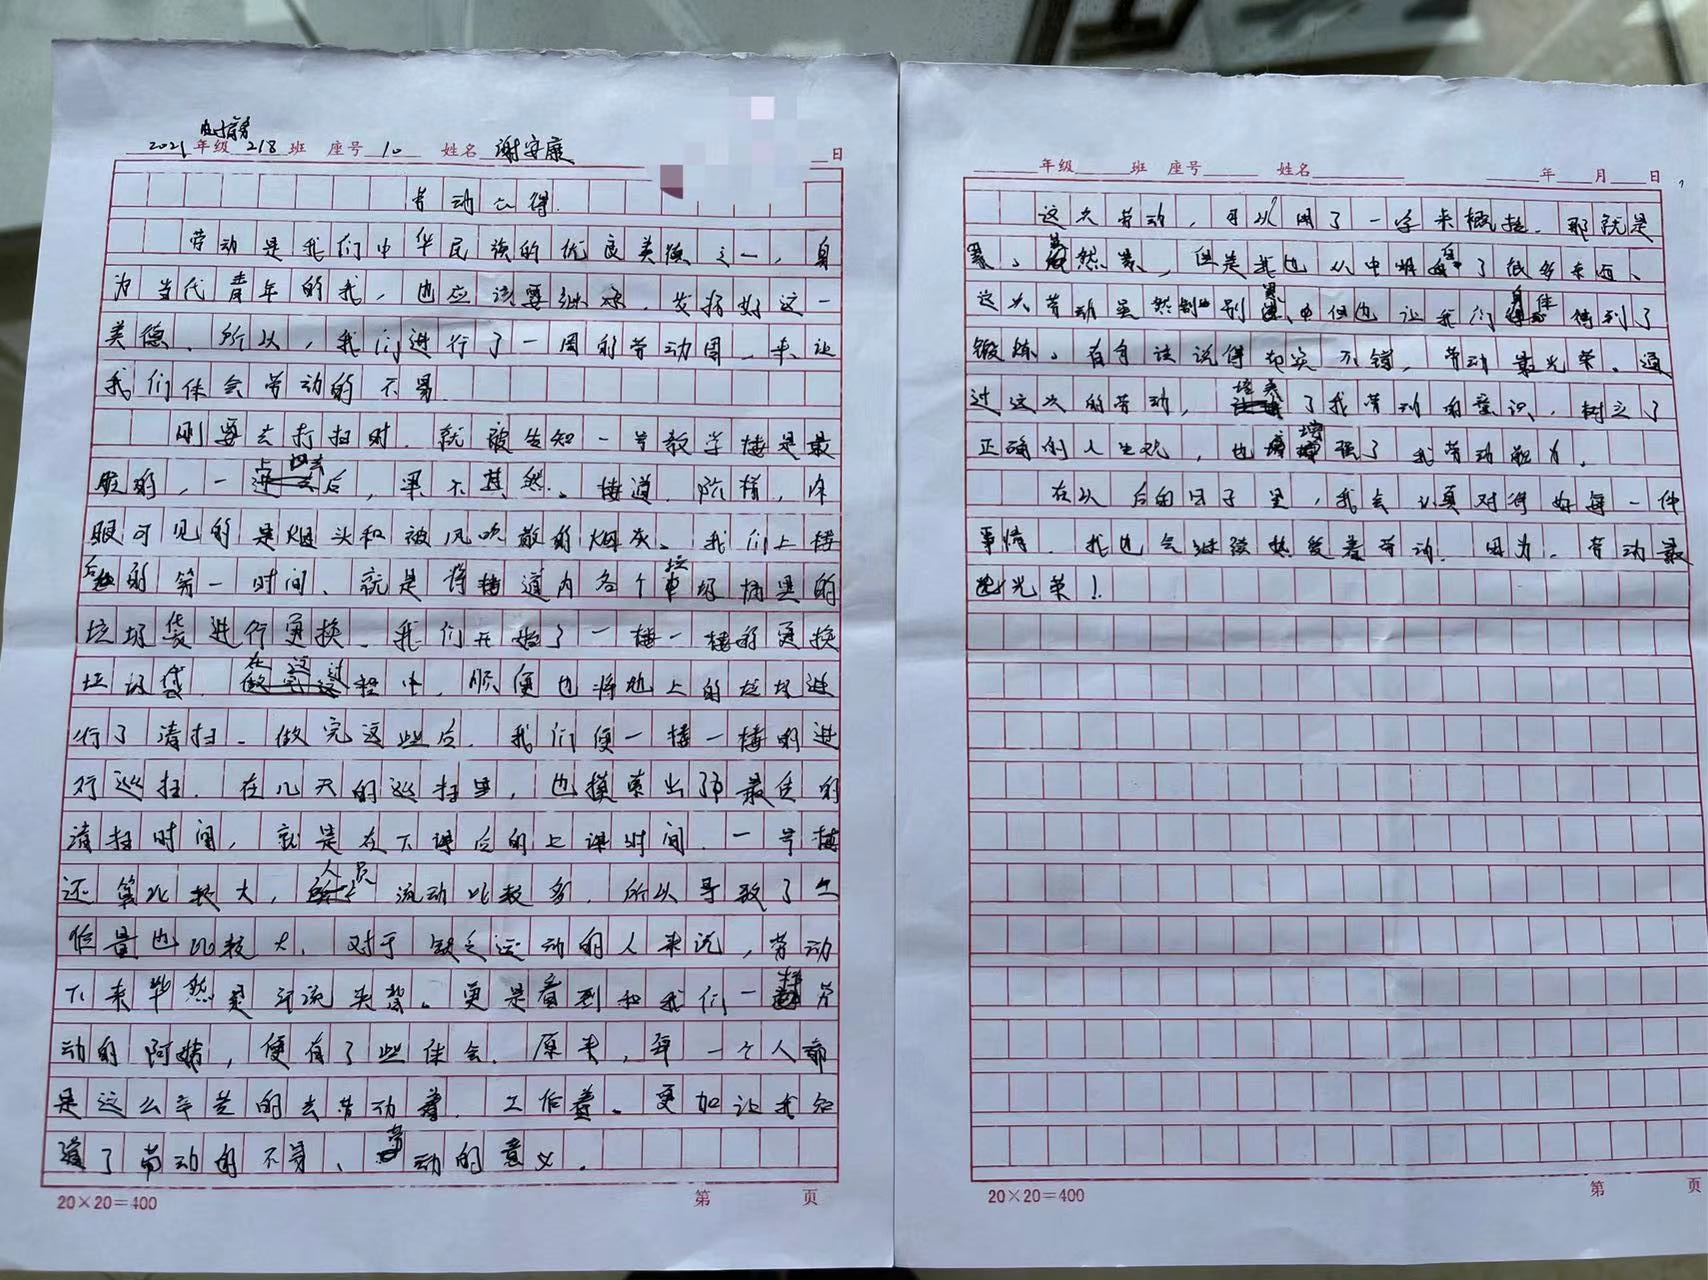 2021年级218班 座号10 姓名谢安康 日
劳动心得
劳动是我们中华民族的优良美德之一,身
为当代青年的我,也应该要继承、发扬好这一
美德、所以,我们进行了一周的劳动周,来让
我们体会劳动的不易
刚要去打扫时、就被告知一号教学楼是最
脏的,一上去后,果不其然、楼道、阶梯,
眼可见的是烟头和被风吹散的烟灰、我们上楼
后的第一时间、就是将楼道内各个垃圾桶里的
垃圾袋进行更换、我们开始了一楼一楼的更换
垃圾袋、在这过程中,顺便也将地上的垃圾进
行了清扫、做完这些后、我们便一楼一楼的进
行巡扫、在几天的巡扫里,也摸索出了最佳的
清扫时间,就是在下课后的上课时间、一号楼
还算比较大,人员流动比较多、所以导致了工
作量也比较大、对于缺乏运动的人来说,劳动
下来毕然是汗流夹背。更是看到和我们一样劳
动的阿姨,便有了些体会、原来,每一个人都
是这么辛苦的去劳动着、工作着。更加让我知
道了劳动的不易、劳动的意义.
20×20=400 第 页
年级 班 座号 姓名 年 月 日
这次劳动,可以用了一字来概括、那就是
累、虽然累,但是我也从中了很多东西、
这次劳动虽然特别累但也让我们身体得到了
锻炼。有句话说得却实不错,劳动最光荣。通
过这次的劳动,培养了我劳动的意识,树立了
正确的人生观,也增强了我劳动能力,
在以后的日子里,我会认真对待好每一件
事情、我也会继续热爱着劳动、因为、劳动最
光荣!
20×20=400 第 页